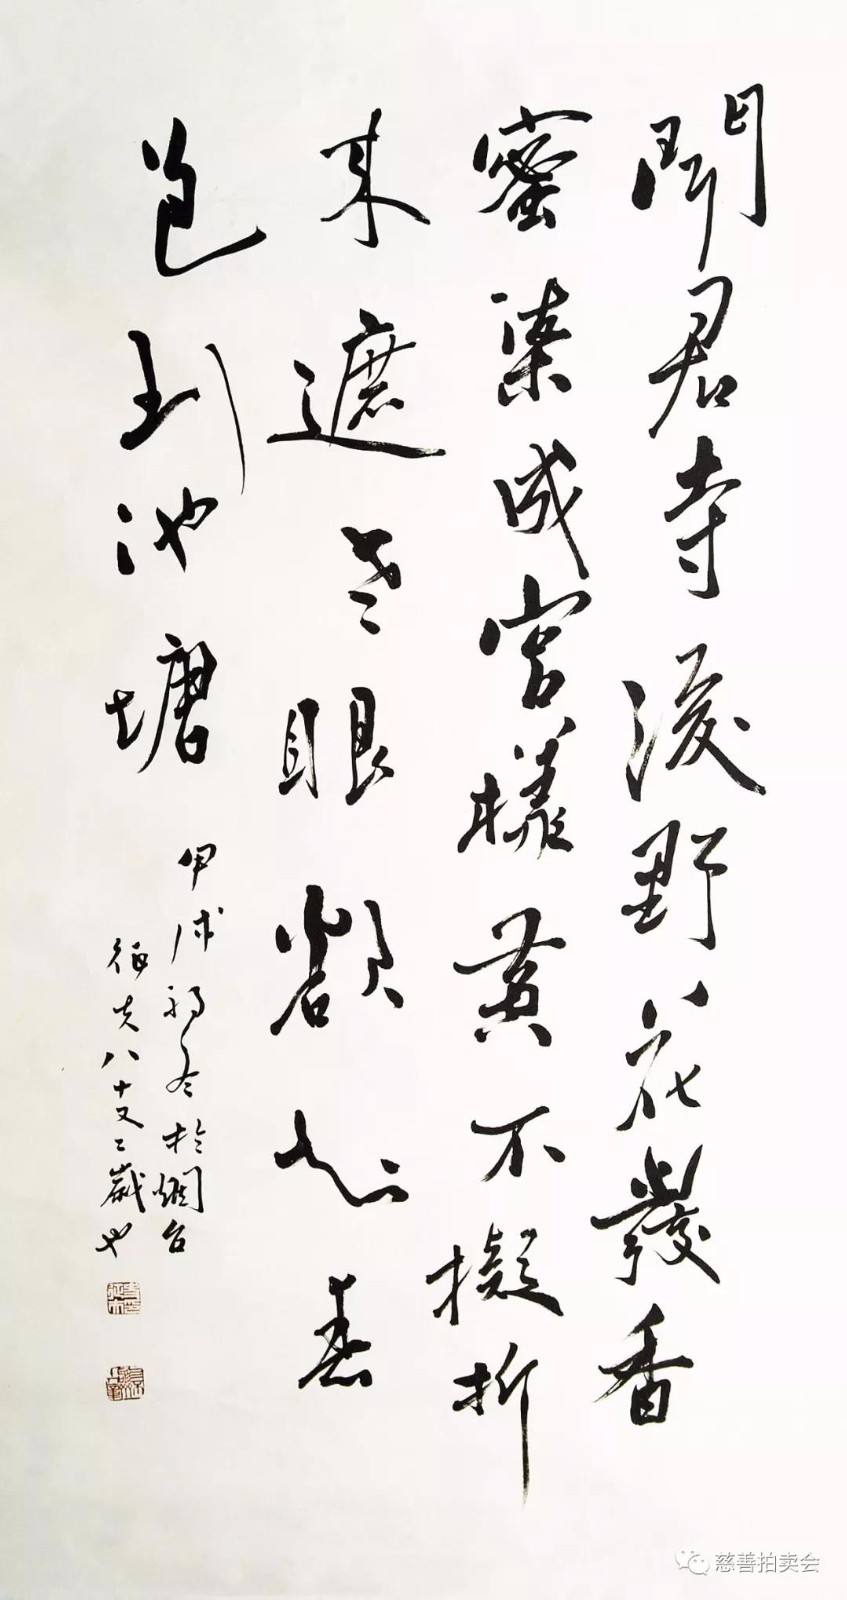 聞君寺後野花發香
蜜染成宮樣黃不擬折
来遮老眼欲知春
色到池塘
甲戌初冬於烟台
征夫八十又二歲也
慈善拍卖会